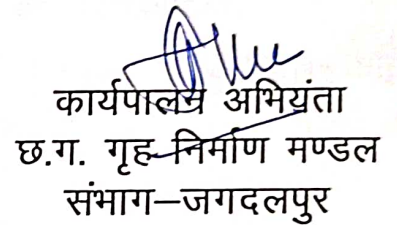 कार्यपालन अभियंता
छ.ग. गृह निर्माण मण्डल
संभाग–जगदलपुर